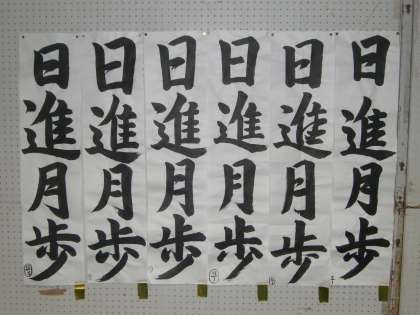 日進月歩
日進月歩
日進月歩
日進月歩
日進月歩
日進月歩